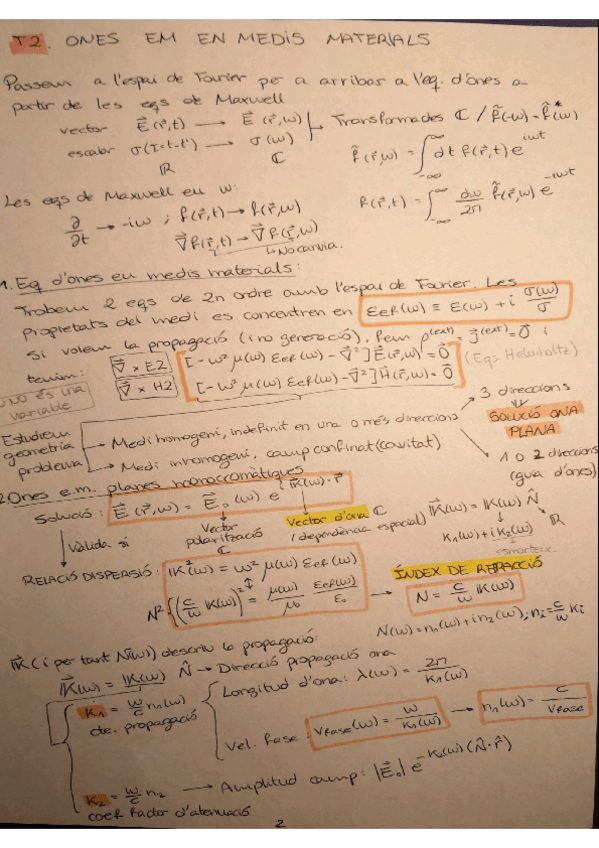 T2. ONES EM EN MEDIS MATERIALS
Passem a l'espai de Fourier per a arribar a l'eq. d'ones a
partir de les eqs de Maxwell
vector E⃗(r⃗,t) → E⃗(r⃗,w) Transformades ℂ / f̂(-w) = f̂*(w)
escalar σ(τ=t-t') → σ(w)
ℝ ℂ f̂(r⃗,w) = ∫_{-∞}^{∞} dt f(r⃗,t) e^{iwt}
Les eqs de Maxwell en w: f(r⃗,t) = ∫_{-∞}^{∞} dw/2π f̂(r⃗,w) e^{-iwt}
∂/∂t → -iw ; f(r⃗,t) → f(r⃗,w)
∇⃗f(r⃗,t) → ∇⃗f(r⃗,w)
↳ No canvia.
1. Eq d'ones en medis materials:
Trobem 2 eqs de 2n ordre amb l'espai de Fourier. Les
propietats del medi es concentren en εeff(w) ≡ ε(w) + i σ(w)/σ
Si volem la propagació (i no generació), fem ρ^(ext) = J⃗^(ext) = 0⃗ i
tenim: ∇⃗ × E2 [-w² μ(w) εeff(w) - ∇²] E⃗(r⃗,w) = 0⃗ (Eqs Helmholtz)
∇⃗ × H2 [-w² μ(w) εeff(w) - ∇²] H⃗(r⃗,w) = 0⃗
w no és una
variable
Estudiem
geometria
problema
Medi homogeni, indefinit en una o més direccions → 3 direccions
SOLUCIÓ ONA
PLANA
Medi inhomogeni, camp confinat (cavitat)
1 o 2 direccions
(guia d'ones)
2. Ones e.m. planes monocromàtiques
Solució: E⃗(r⃗,w) = E⃗₀(w) e^{i K⃗(w)·r⃗}
Vector
polarització
ℂ
Vector d'ona ℂ
(dependència espacial)
K⃗(w) = K(w) N̂
ℝ
K₁(w) + i K₂(w)
esmorteix.
Vàlida si
RELACIÓ DISPERSIÓ: K²(w) = w² μ(w) εeff(w)
N²: (c/w K(w))² = μ(w)/μ₀ εeff(w)/ε₀
ÍNDEX DE REFRACCIÓ
N = c/w K(w)
N(w) = n₁(w) + i n₂(w); nᵢ = c/w Kᵢ
K⃗ (i per tant N(w)) descriu la propagació:
K⃗(w) = K(w) N̂ → Direcció propagació ona
K₁ = w/c n₁(w)
cte. propagació
Longitud d'ona: λ(w) = 2π/K₁(w)
Vel. fase: Vfase(w) = w/K₁(w) → n₁(w) = c/Vfase
K₂ = w/c n₂ → Amplitud camp: |E⃗₀| e^{-K₂(w)(N̂·r⃗)}
coef factor d'atenuació
2